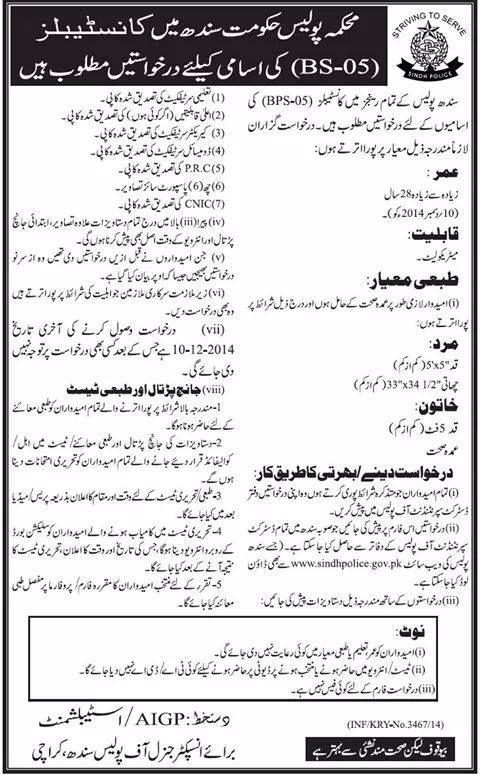 محکمہ پولیس حکومت سندھ میں کانسٹیبلز
(BS-05) کی اسامی کیلئے درخواستیں مطلوب ہیں
STRIVING TO SERVE
SINDH POLICE
سندھ پولیس کے تمام رینجز میں کانسٹیبلز (BPS-05) کی
اسامیوں کے لئے درخواستیں مطلوب ہیں۔ درخواست گزاران
لازماً مندرجہ ذیل معیار پر پورا اترتے ہوں۔
عمر:
زیادہ سے زیادہ 28 سال
(10 دسمبر 2014 کو)۔
قابلیت:
میٹریکولیٹ۔
طبعی معیار:
(i) امیدوار لازمی طور پر عمدہ صحت کے حامل ہوں اور درج ذیل شرائط پر
پورا اترتے ہوں:
مرد:
قد "5x'5 (کم از کم)
چھاتی "33"x34 1/2 (کم از کم)
خاتون:
قد 5 فٹ (کم از کم)
عمدہ صحت
درخواست دینے/بھرتی کا طریق کار:
(i) تمام امیدواران جو متذکرہ شرائط پوری کرتے ہوں وہ اپنی درخواستیں دفتر
ڈسٹرکٹ سپرنٹنڈنٹ آف پولیس میں پیش کریں۔
(ii) درخواستیں اس فارم پر پیش کی جائیں جو صوبہ سندھ میں تمام ڈسٹرکٹ
سپرنٹنڈنٹ آف پولیس کے دفاتر سے حاصل کیا جا سکتا ہے۔ (جسے سندھ
پولیس کی ویب سائٹ www.sindhpolice.gov.pk سے بھی ڈاؤن
لوڈ کیا جا سکتا ہے۔
(iii) درخواستوں کے ساتھ مندرجہ ذیل دستاویزات پیش کی جائیں:
(1) تعلیمی سرٹیفکیٹ کی تصدیق شدہ کاپی۔
(2) اعلیٰ قابلیتیں (اگر کوئی ہوں) کی تصدیق شدہ کاپی۔
(3) کیریکٹر سرٹیفکیٹ کی تصدیق شدہ کاپی۔
(4) ڈومیسائل سرٹیفکیٹ کی تصدیق شدہ کاپی۔
(5) P.R.C کی تصدیق شدہ کاپی۔
(6) چھ (6) پاسپورٹ سائز تصاویر۔
(7) CNIC کی تصدیق شدہ کاپی۔
(iv) پیرا (iii) بالا میں درج تمام دستاویزات علاوہ تصاویر، ابتدائی جانچ
پڑتال اور انٹرویو کے وقت اصل بھی پیش کرنا ہوں گی۔
(v) جن امیدواروں نے قبل ازیں درخواستیں دی تھیں وہ از سر نو
درخواستیں بھیجیں جیسا کہ اوپر بیان کیا گیا ہے۔
(vi) زیر ملازمت سرکاری ملازمین جو اہلیت کی شرائط پر پورا اترتے ہیں
وہ بھی درخواست دیں۔
(vii) درخواست وصول کرنے کی آخری تاریخ
10-12-2014 ہے جس کے بعد کسی بھی درخواست پر توجہ نہیں
دی جائے گی۔
(viii) جانچ پڑتال اور طبعی ٹیسٹ
1- مندرجہ بالا شرائط پر پورا اترنے والے تمام امیدواران کو طبعی معائنے
کے لئے حاضر ہونا ہوگا۔
2- دستاویزات کی جانچ پڑتال اور طبعی معائنے/ٹیسٹ میں اہل/
کوالیفائڈ قرار دیئے جانے والے تمام امیدواران کو تحریری امتحانات دینا
ہوں گے۔
3- طبعی/تحریری ٹیسٹ کے لئے وقت اور مقام کا اعلان بذریعہ پریس/میڈیا
بعد میں کیا جائے گا۔
4- تحریری ٹیسٹ میں کامیاب ہونے والے امیدواران کو سلیکشن بورڈ
کے روبرو انٹرویو دینا ہوگا، جس کی تاریخ اور وقت کا اعلان تحریری ٹیسٹ کا
نتیجہ آنے کے بعد کیا جائے گا۔
5- تقرر کے لئے منتخب امیدواران کا مقررہ فارم/پروفارما پر مفصل طبی
معائنہ کیا جائے گا۔
نوٹ:
(i) امیدواران کو عمر، تعلیم یا طبعی معیار میں کوئی رعایت نہیں دی جائے گی۔
(ii) ٹیسٹ/انٹرویو میں حاضر ہونے یا منتخب ہونے پر ڈیوٹی پر حاضر ہونے کیلئے کوئی ٹی اے/ڈی اے نہیں دیا جائے گا۔
(iii) درخواست فارم کے لئے کوئی فیس نہیں ہے۔
دستخط: AIGP/اسٹیبلشمنٹ
برائے انسپکٹر جنرل آف پولیس سندھ، کراچی
(INF/KRY-No.3467/14)
بیوقوف لیکن صحت مند غشی سے بہتر ہے